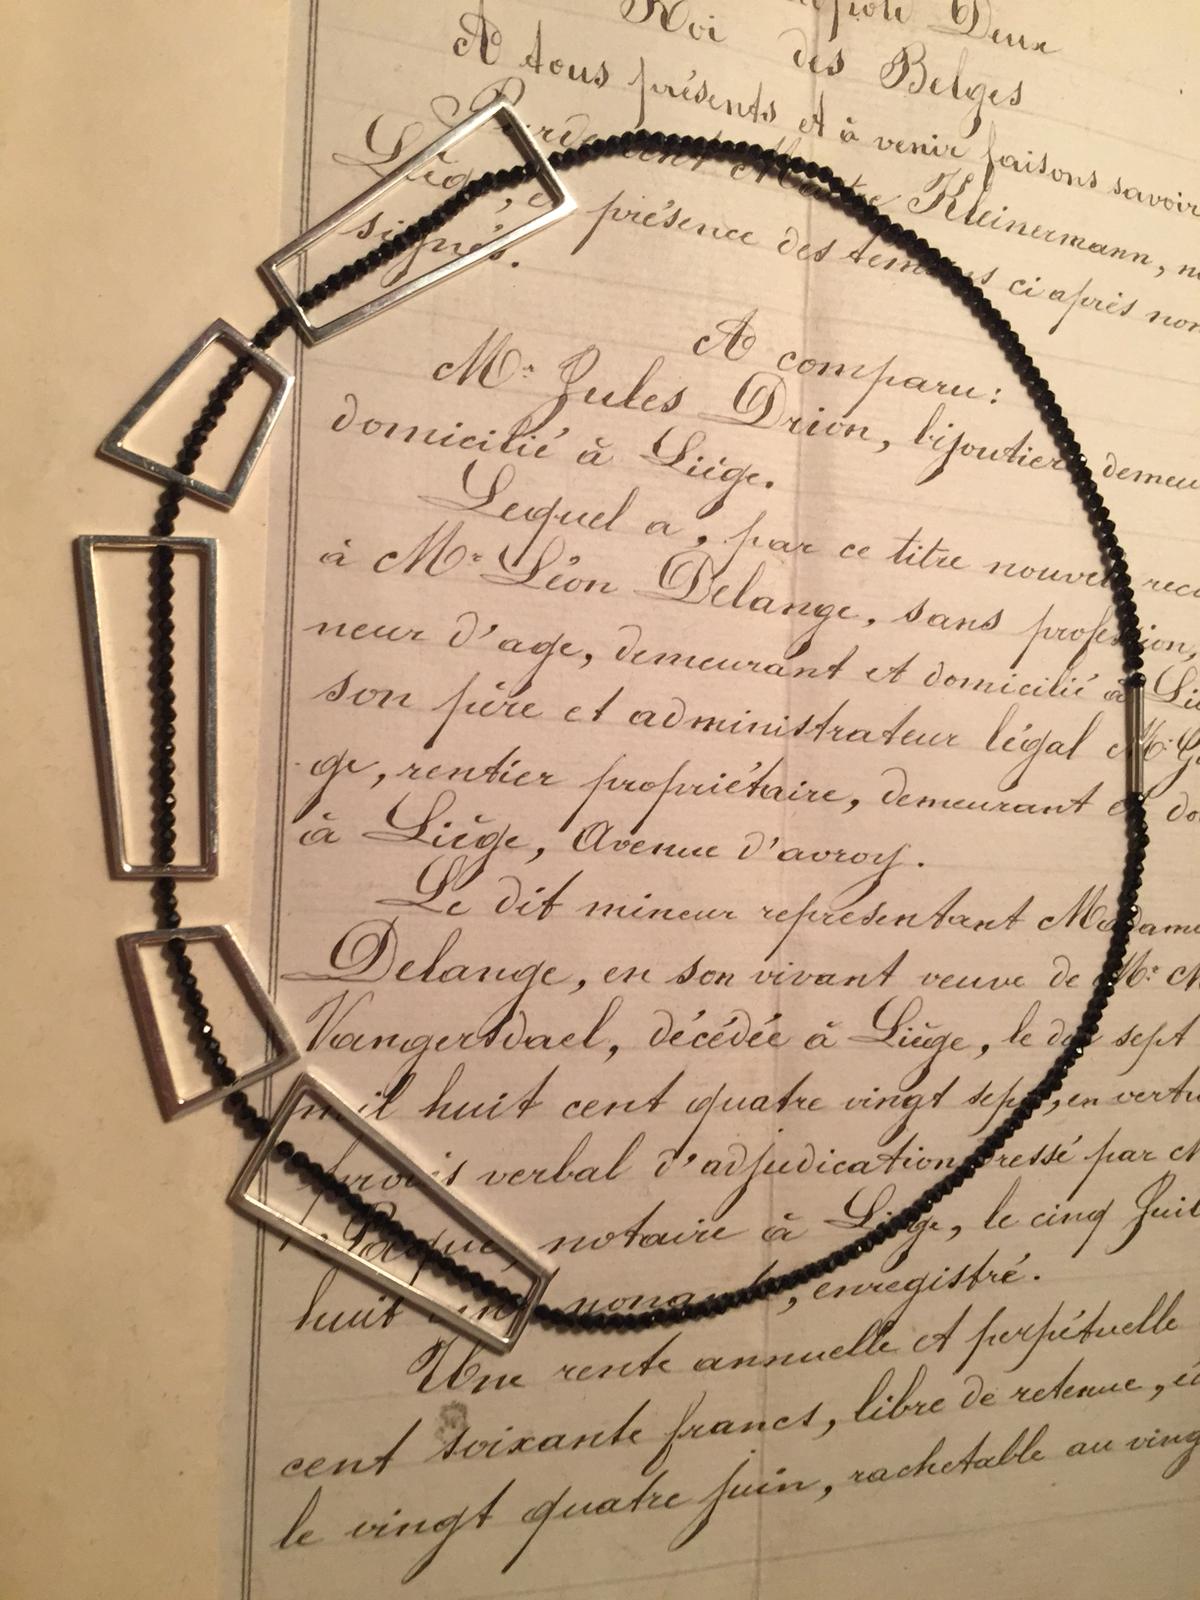 Deux
Roi des Belges
A tous présents et à venir faisons savoir
Maître Kleinermann,
Liége, présence des témoins ci après
signés.
A comparu:
Mr. Jules Drion, bijoutier,
domicilié à Liége.
Lequel a, par ce titre nouvel,
à Mr. Léon Delange, sans profession,
neur d'age, demeurant et domicilié à
son père et administrateur légal Mr.
ge, rentier propriétaire, demeurant et
à Liége, Avenue d'avroy.
Le dit mineur représentant Madame
Delange, en son vivant veuve de Mr.
Vangersdael, décédée à Liége, le dix sept
mil huit cent quatre vingt sept, en
procès verbal d'adjudication dressé par
notaire à Liége, le cinq
huit cent nonante, enregistré.
Une rente annuelle et perpétuelle
cent soixante francs, libre de retenue,
le vingt quatre juin, rachetable au